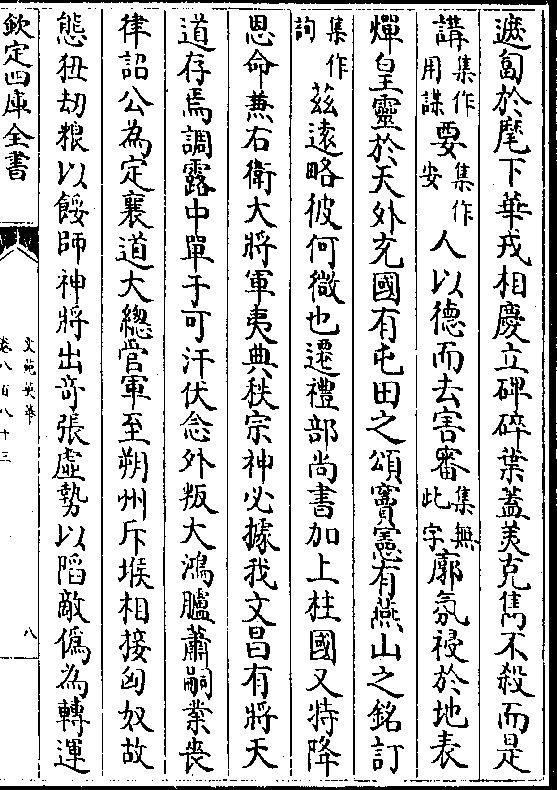 遮匐於麾下華戎相慶立碑碎葉蓋美克雋不殺而是
講集作用謀要集作安人以德而去害審集無此字廓氛祲於地表
燀皇靈於天外充國有屯田之頌竇憲有燕山之銘訂
集作詞茲遠略彼何微也遷禮部尚書加上柱國又特降
恩命兼右衛大將軍夷典秩宗神必據我文昌有將天
道存焉調露中單于可汗伏念外叛大鴻臚蕭嗣業喪
律詔公為定襄道大總管軍至朔州斥堠相接匈奴故
態狃劫糧以餒師神將出奇張虛勢以陷敵偽為轉運
欽定四庫全書
文苑英華
卷八百八十三
八